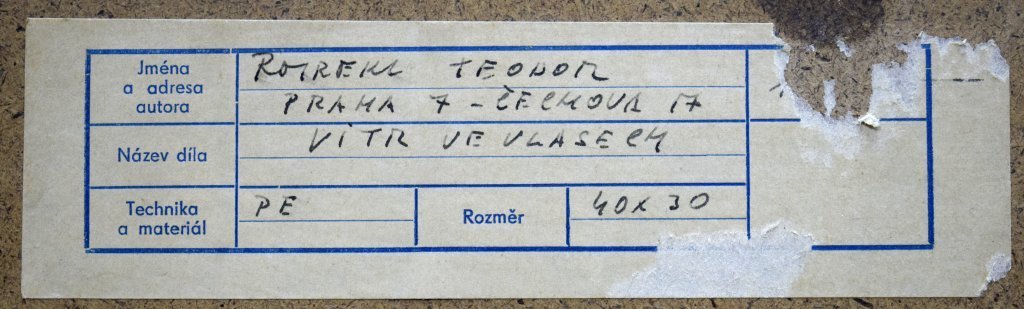 Jména
a adresa
autora
ROTREKL TEODOR
PRAHA 7 - ČECHOVA 17
Název díla
VÍTR VE VLASECH
Technika
a materiál
PE
Rozměr
40x30